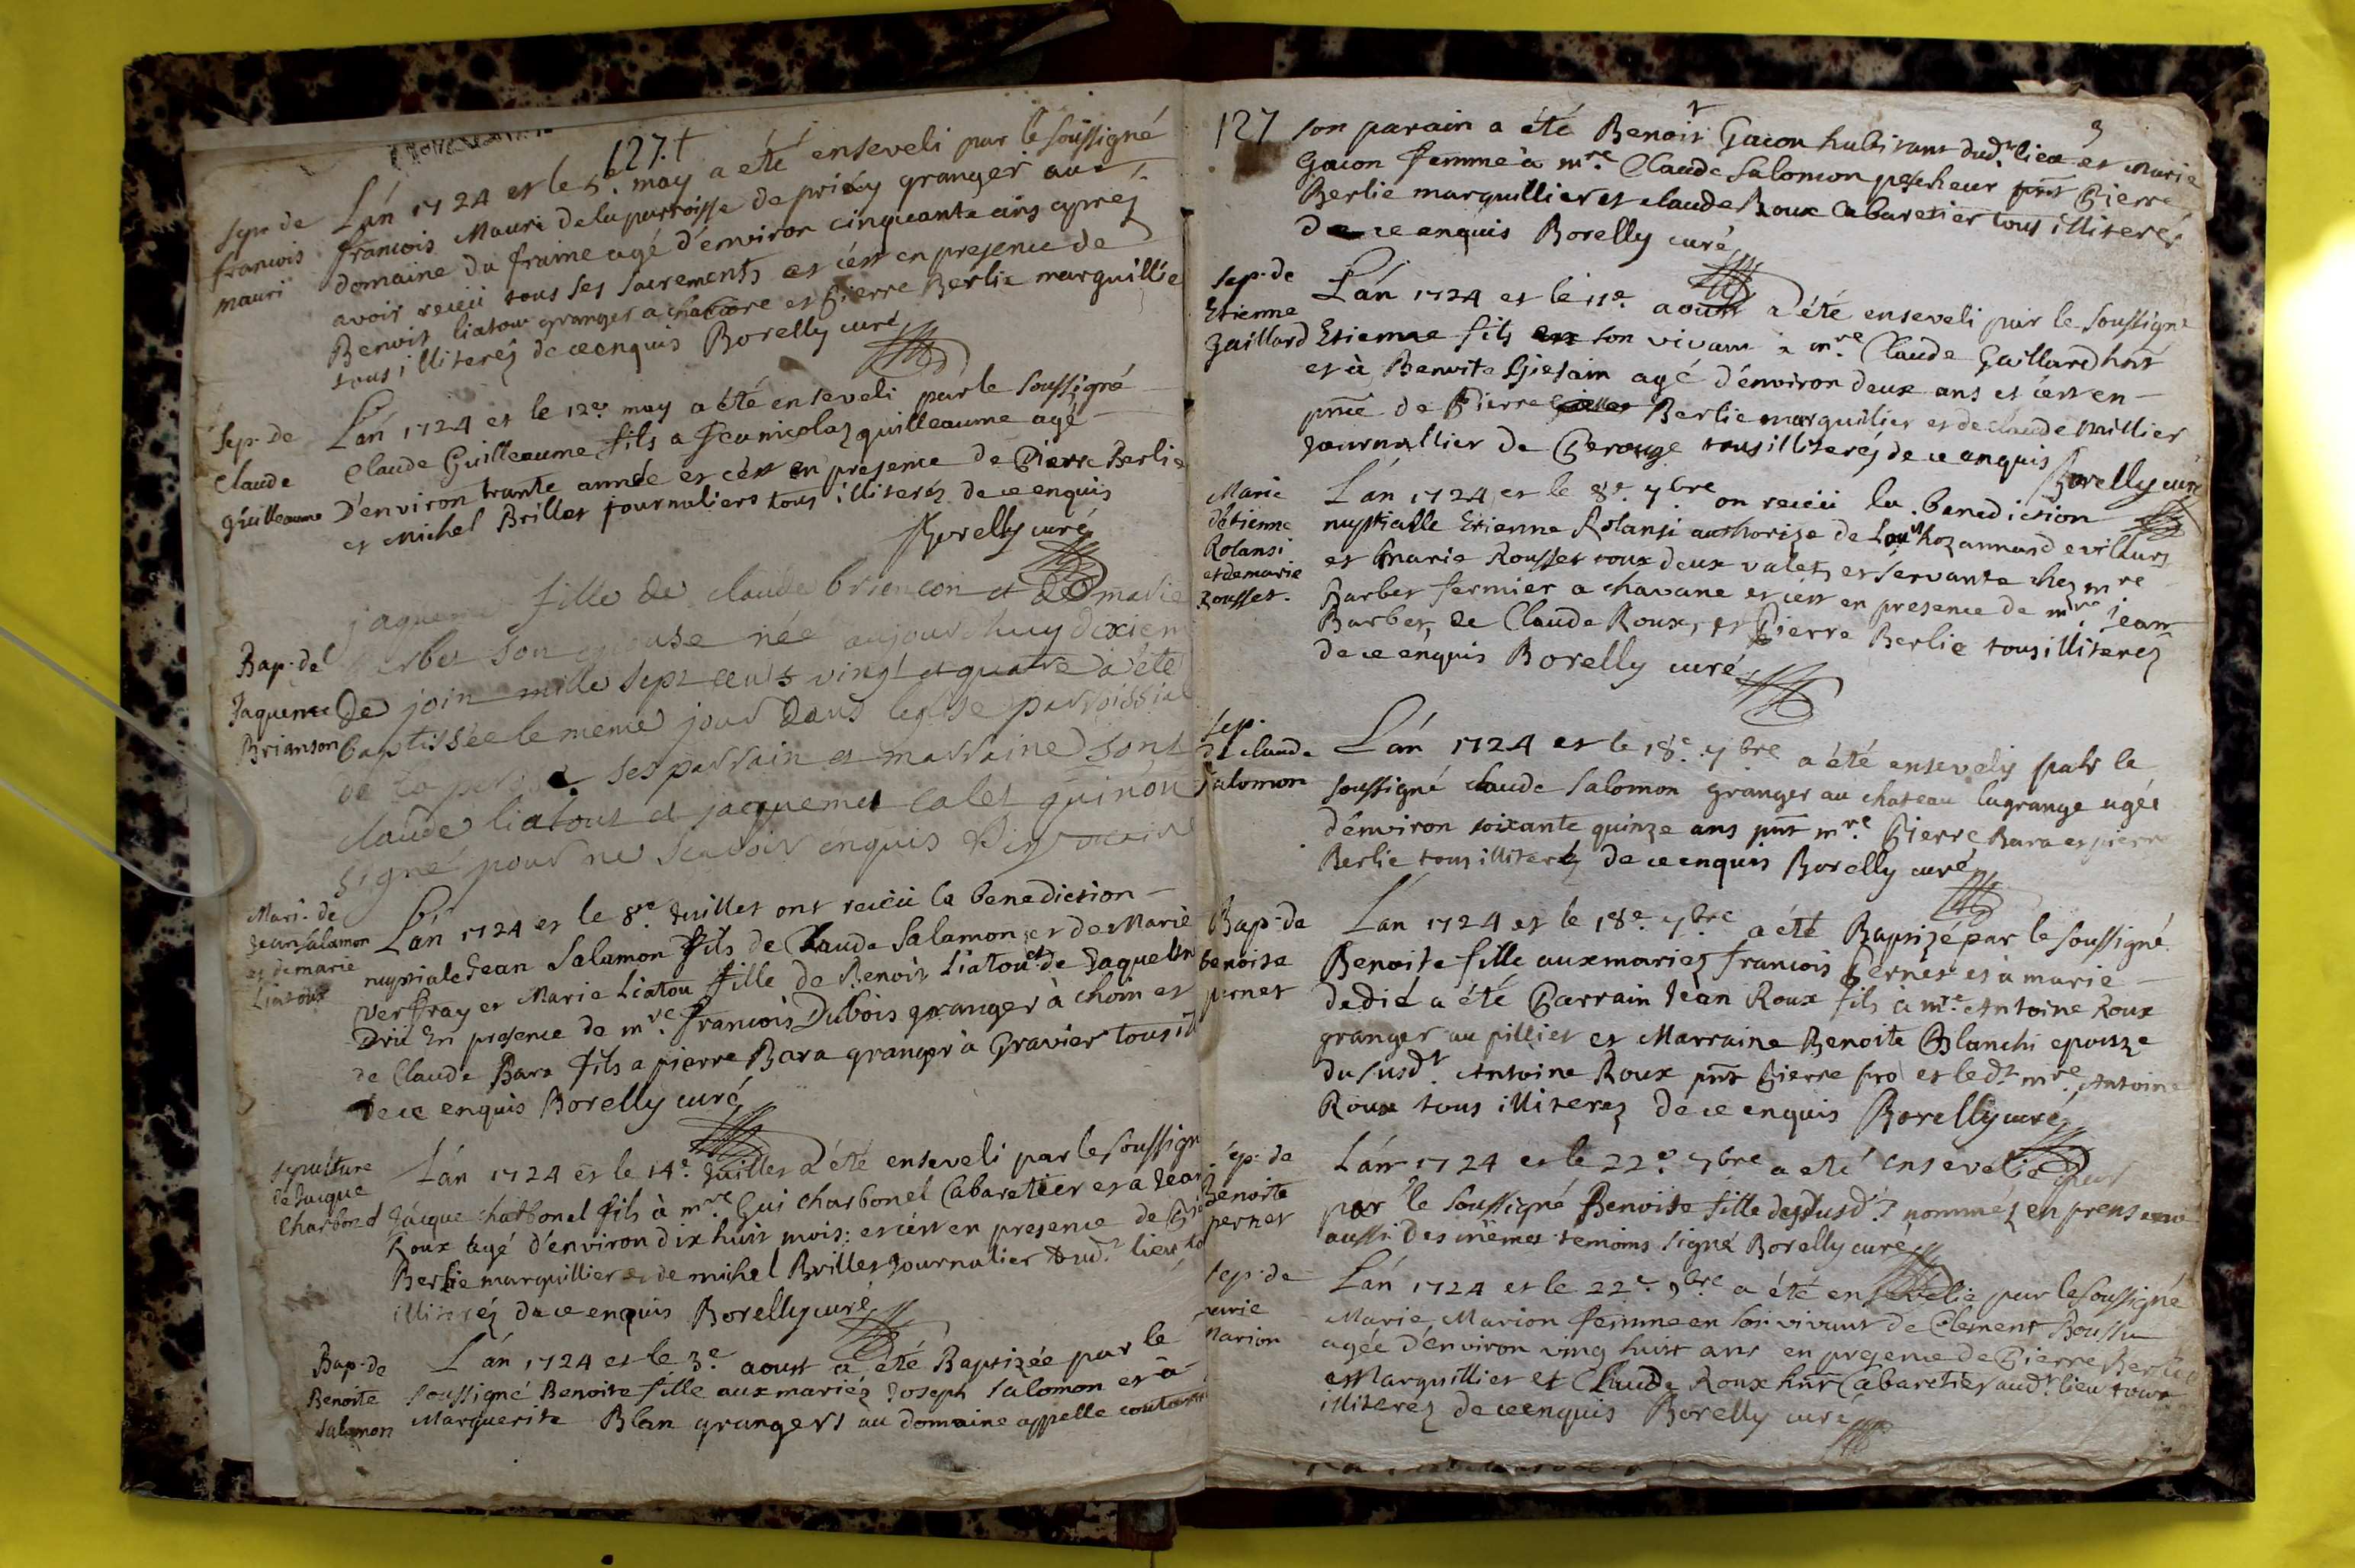 127.t
Sep. de
francois
mauri
Lán 1724 et le 5e. may a été enseveli par le soussigné
francois Mauri de la parroisse de granger au
domaine du fraime agé d'environ cinquante ans aprez
avoir receü tous ses sacrements et cést en presence de
Benoit liatou granger a et Pierre Berlie marguillie
tous illiterez de ce enquis Borelly curé
Sep. de
Claude
guilleaume
Lán 1724 et le 12e. may a été enseveli par le soussigné
Claude Guilleaume fils a Jeanicolaz guilleaume agé
D'environ trante année et cést en presence de Pierre Berlie
et Michel Brillet journaliers tous illiterez de ce enquis
Borelly curé
Bap. de
Jaqueme
Brianson
jaqueme fille de claude briencon et de marie
son epouse née aujourdhuy dixiem
De join mille sept cents vingt et quatre a été
baptissée le meme jour dans leglise parroissial
de ses parrain et marraine sont
claude liatout et jacquemet calet qui nont
signé pour ne scavoir enquis
Mari. de
Jean Salamon
et de marie
Liatoux
Lán 1724 et le 8me Juillet ont receü la benediction
nuptiale Jean Salamon fils de Claude Salamon et de Marie
Verffray et Marie Liatou fille de Benoit Liatou et de Jaqueline
Driü En presence de mre. Francois Dubois granger à choin et
de Claude Bara fils a pierre Bara granger à Gravier tous ill
de ce enquis Borelly curé
sepulture
de Jacque
Charbonel
Lán 1724 et le 14e. Juillet a été enseveli par le soussign
Jacque charbonel fils à mre Gui charbonel Cabaretier et a Jean
Roux agé d'environ dix huit mois: et cést en presence de Pie
Berlie marguillier et de michel Brillet Journalier dudt. lieu to
illiterez de ce enquis Borelly curé
Bap. de
Benoite
Salamon
Lán 1724 et le 3e. aoust a été Baptizée par le
soussigné Benoite fille aux mariéz Joseph Salomon et à
Marguerite Blan grangers au domaine appelle
127
3
son parain a été Benoit Gacon habitant dudt. lieu et Marie
Gacon femme à mre. Claude Salomon pescheur pnt Pierre
Berlie marguillier et claude Roux Cabaretier tous illiterés
de ce enquis Borelly curé
Sep. de
Etienne
Gaillard
Lán 1724 et le 11e. aoust a été enseveli par le soussigné
Etienne fils en son vivant a mre. Claude Gaillard hnt
et à Benoite agé d'environ deux ans et cést en
pnce de Pierre Berlie marguilier et de claude Millier
Journallier de Perouge tous illiteréz de ce enquis
Borelly curé
Marie
d'étienne
Rolansi
et de marie
Rousset.
Lán 1724 et le 8e. 7bre on receü la benediction
nuptialle Etienne Rolansi authorize de
et Marie Rousset tous deux valets et servante chez mre
Barbet fermier a chavane et cést en presence de mre. Jean
Barbet, de Claude Roux, et Pierre Berlie tous illiterez
de ce enquis Borelly curé
Sep.
de Claude
Salomon
Lán 1724 et le 18e. 7bre a été ensevely par le
soussigné claude Salomon granger au chateau lagrange agée
d'environ soixante quinze ans pnt mre. Pierre Bara et pierre
Berlie tous illiterez de ce enquis Borelly curé
Bap. de
benoite
pernet
Lan 1724 et le 18e. 7bre a été Baptizé par le soussigné
Benoite fille aux mariez francois Pernet et à marie
dedié a été Parrain Jean Roux fils à mre. Antoine Roux
granger au pillier et Marraine Benoite Blanchi epouze
du susdt. Antoine Roux pnt Pierre fro et ledt. mre. Antoine
Roux tous illiterez de ce enquis Borelly curé
Sep. de
Benoite
pernet
Lán 1724 et le 22e. 7bre a eté ensevélie
par le soussigné Benoite fille des susdt. nommez en presence
aussi des mêmes temoins signé Borelly curé
Sep. de
marie
Marion
Lán 1724 et le 22e. 9bre a été ensevelie par le soussigné
Marie Marion femme en son vivant de Clement Boussu
agée d'environ ving huit ans en presence de Pierre Berlie
Marguillier et Claude Roux hnt Cabaretier audt. lieu tous
illiterez de ce enquis Borelly curé